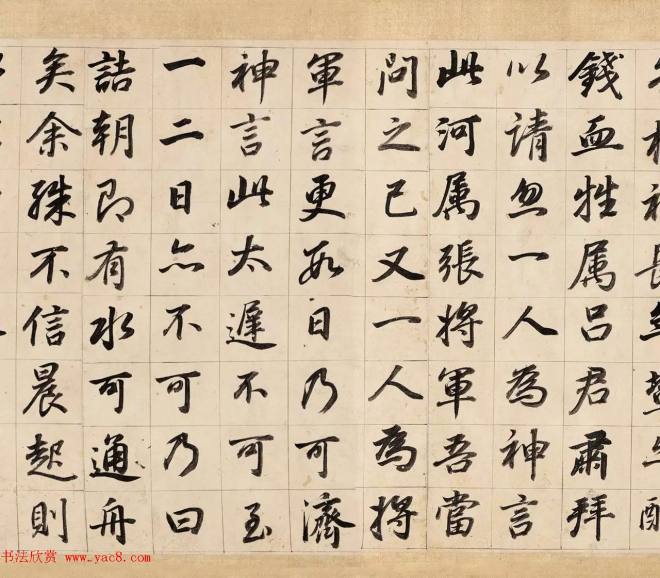 錢血牲属吕君肅拜
以請忽一人為神言
此河属張将軍吾當
問之已又一人為将
軍言更数日乃可濟
神言此太遲不可至
一二日亦不可乃曰
詰朝即有水可通舟
矣余殊不信晨起則
书法欣赏 www.yac8.com